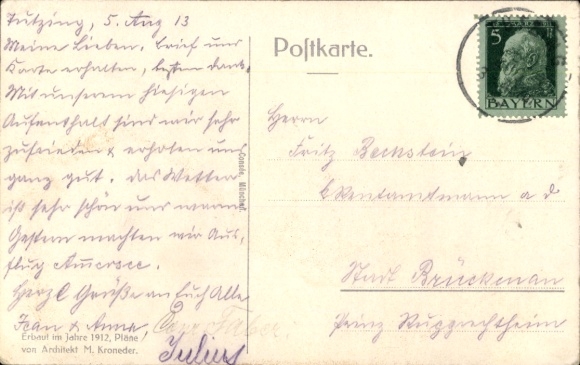 Tutzing, 5. Aug 13
Meine Lieben. Brief und
Karte erhalten, besten Dank.
Mit unserem hiesigen
Aufenthalt sind wir sehr
zufrieden & erholen uns
ganz gut. Das Wetter
ist sehr schön und warm
Gestern machten wir Aus,
flug Ammersee.
Herzl Grüße an Euch Alle
Jean & Anna,
Julius
Erbaut im Jahre 1912, Pläne
von Architekt M. Kroneder.
Postkarte.
5
BAYERN
Herrn
Fritz Beckstein
a d
Stadt Brückenau
Prinz Rupprechtheim